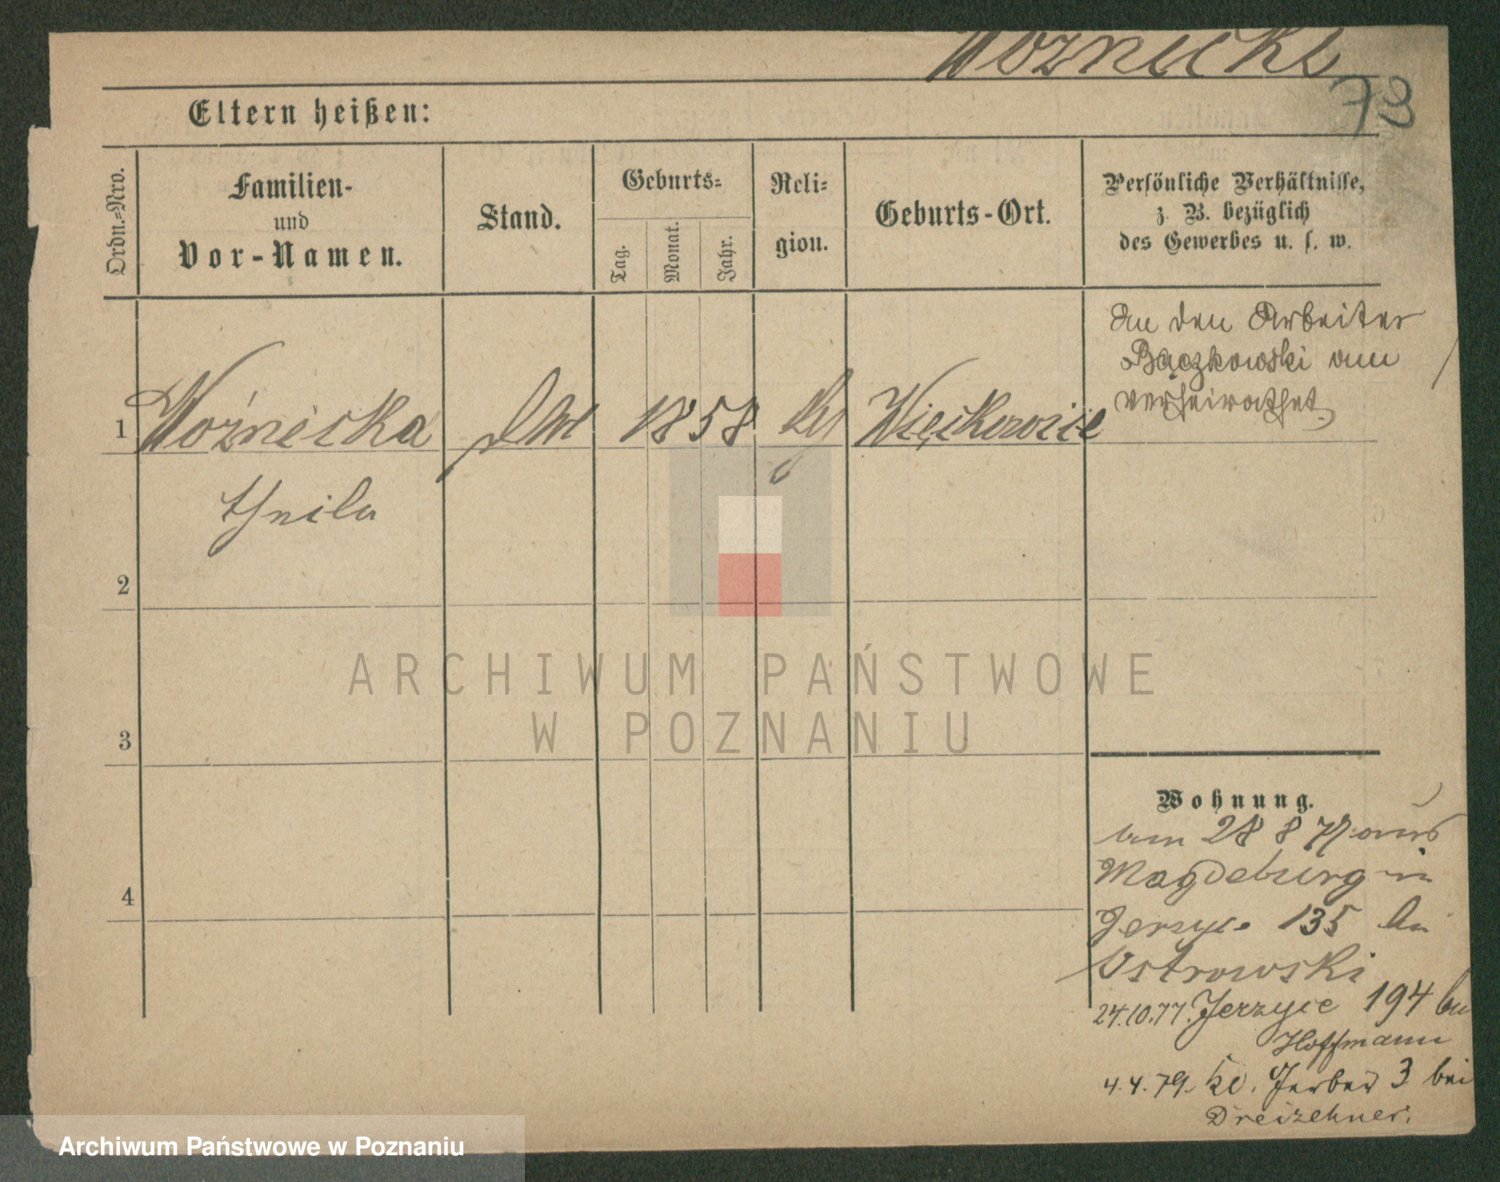 Woznicki
73
Eltern heißen:
Ordn.-Nro.
Familien-
und
Vor-Namen.
Stand.
Geburts-
Tag.
Monat.
Jahr.
Reli-
gion.
Geburts-Ort.
Persönliche Verhältnisse,
z. B. bezüglich
des Gewerbes u. s. w.
An den Arbeiter
Bączkowski
verheirathet
1 Woźnicka 1858 Więckowice
2
3
4
ARCHIWUM PAŃSTWOWE
W POZNANIU
Wohnung.
am 28 8 77 aus
Magdeburg in
Jerzyce 135 bei
Ostrowski
24.10.77. Jerzyce 194 bei
Hoffmann
4.4.79. Kl. Gerber 3 bei
Dreizehner.
Archiwum Państwowe w Poznaniu